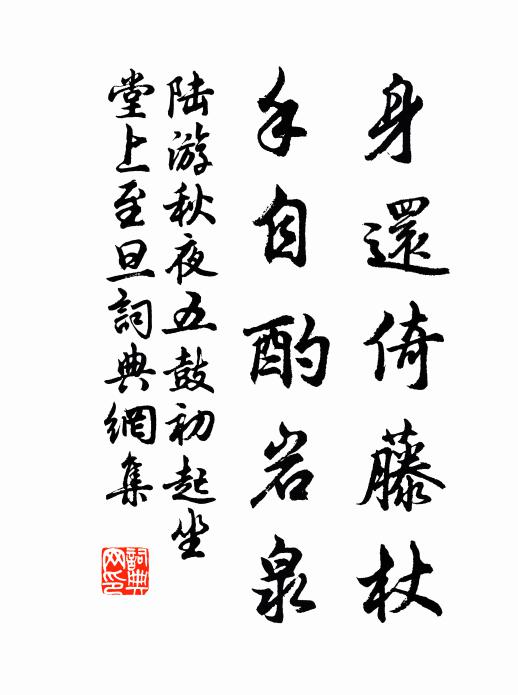 身還倚藤杖
手自酌岩泉
陆游秋夜五鼓初起坐
堂上至旦詞典網集
詞典网印